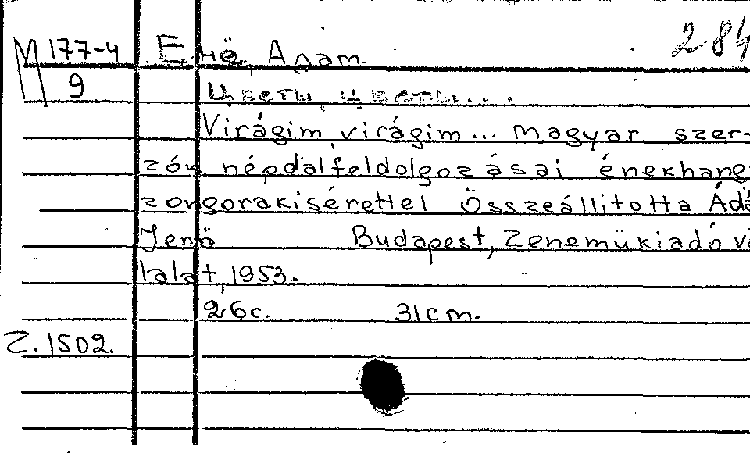 284
М 177-4 Енё, Адам
9 Цветы, цветы...
Virágim, virágim... Magyar szer-
zők népdalfeldolgozásai énekhang
zongorakisérettel Összeállitotta Ádá
Jenö Budapest, Zenemükiadó v
lalat, 1953.
26c. 31cm.
Z.1502.